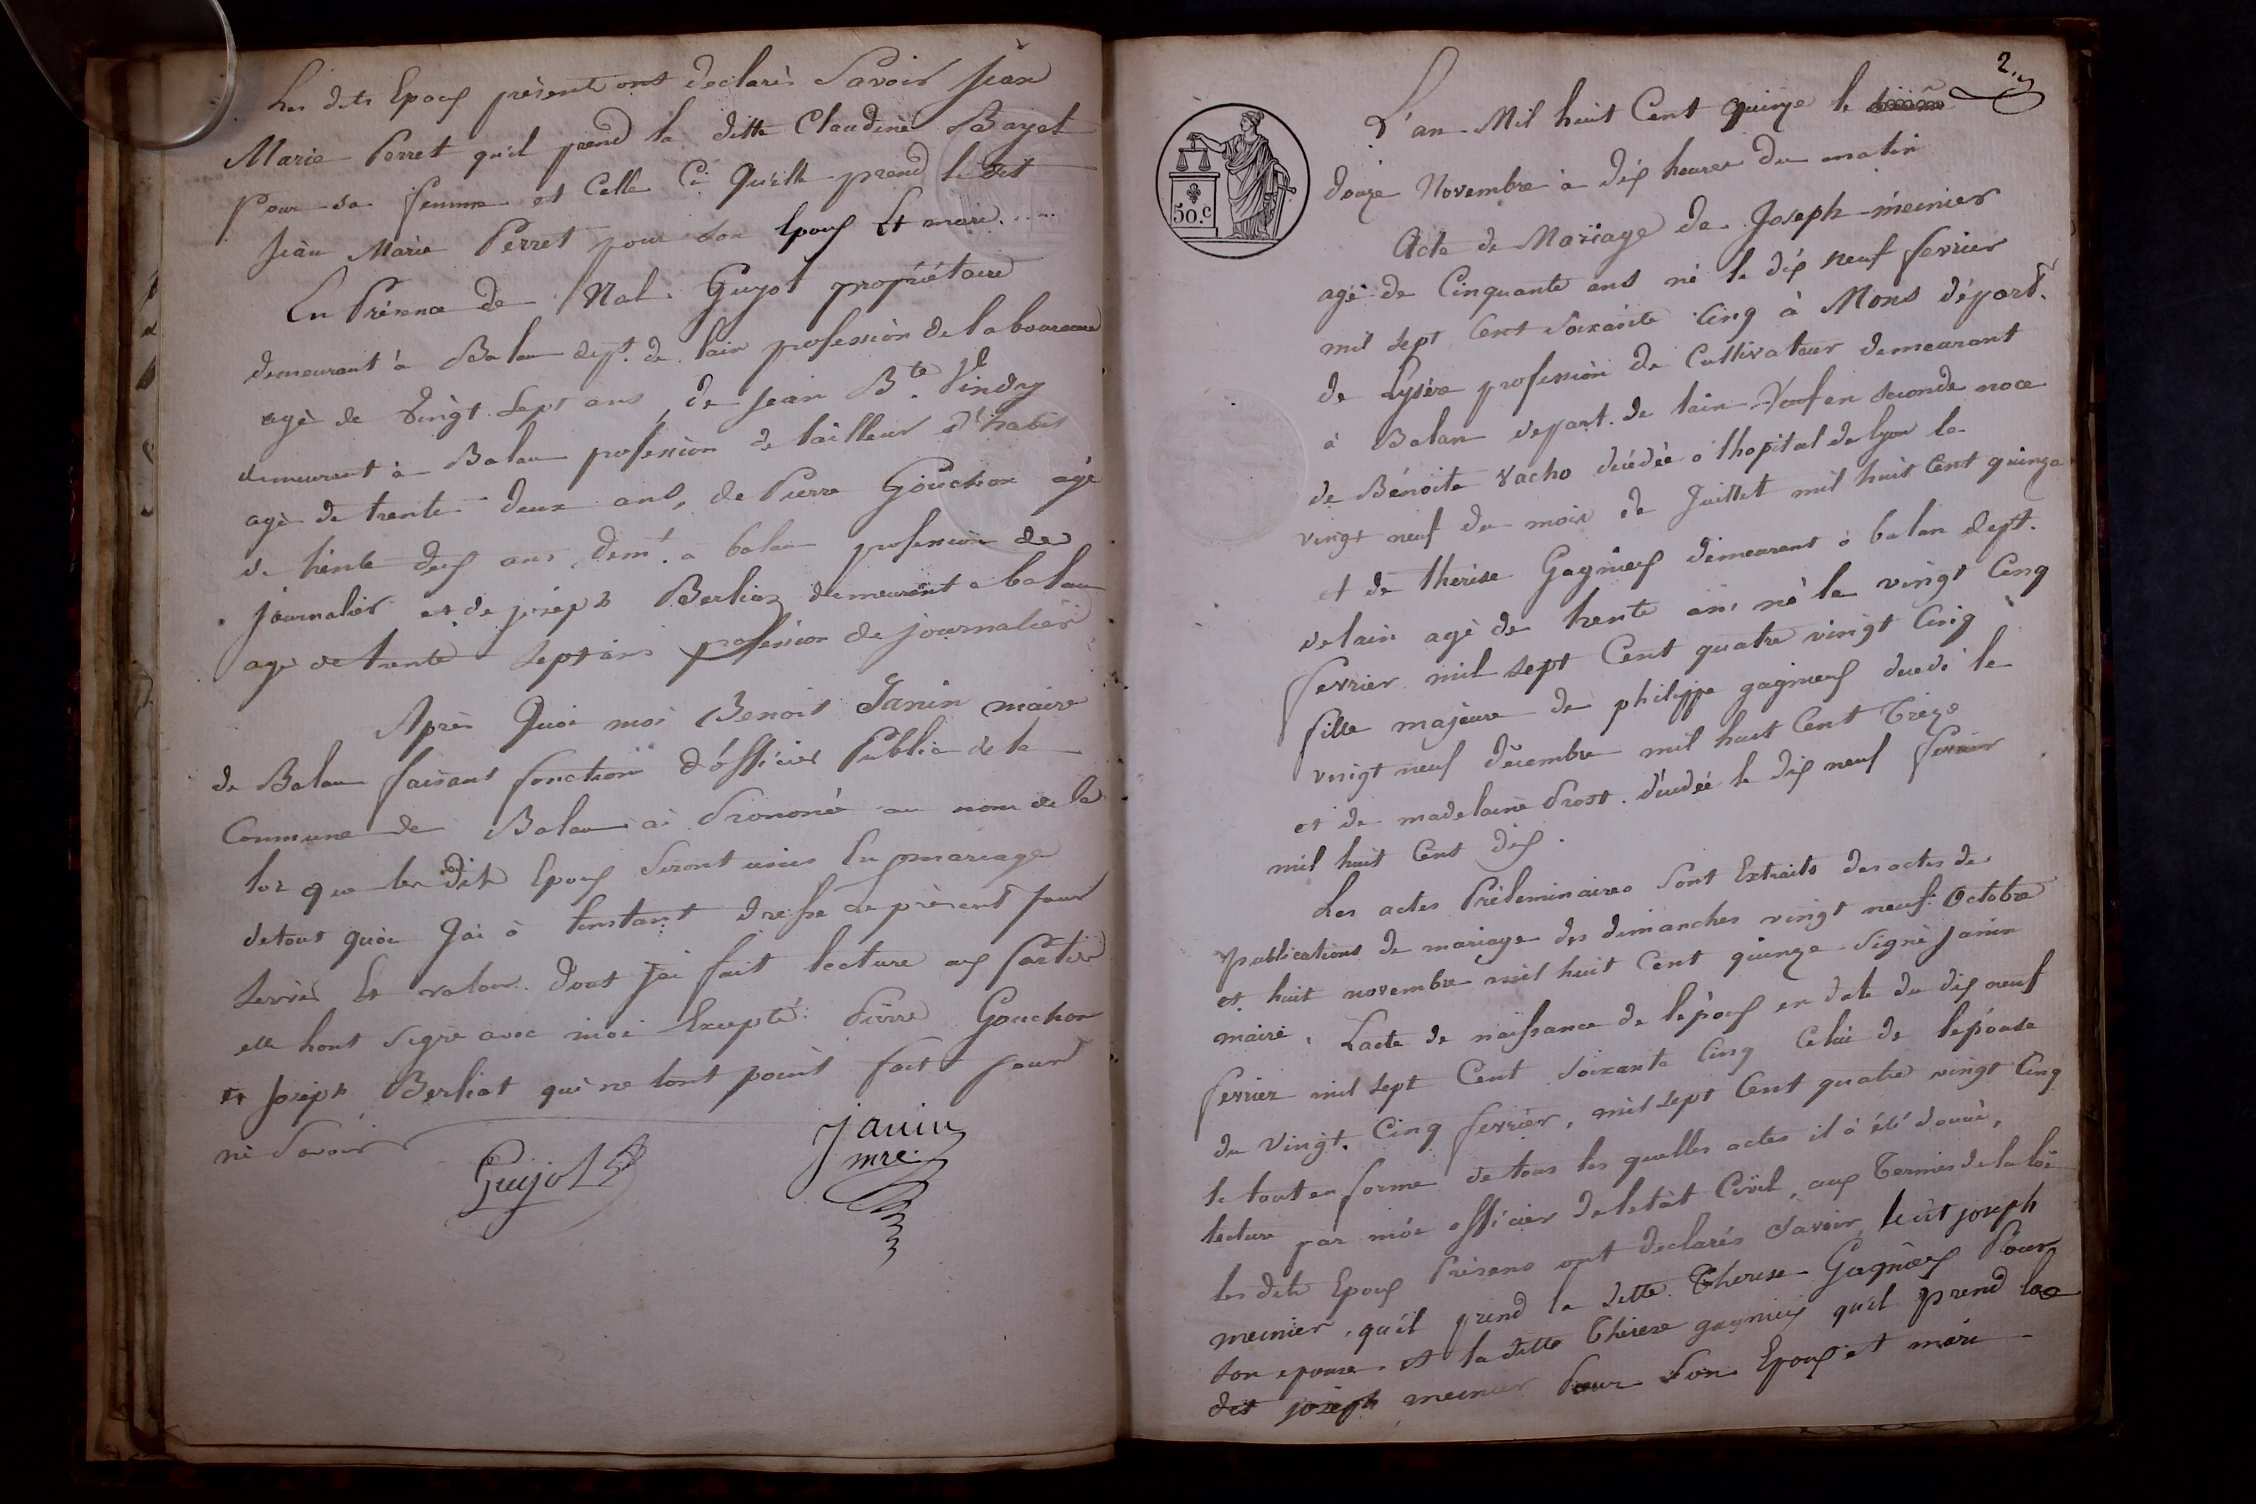 Les dits Epoux présent ont declarés Savoir Jean
Marie Perret qu'il prend la ditte Claudine Bayet
pour sa femme et Celle Ci Qu'elle prend le dit
Jean Marie Perret pour son Epoux Et mari.....
En Présence de Nal. Guyot propriétaire
demeurant à Balan dept. de lain profession de laboureur
agè de vingt Sept ans, de Jean Bte. Vindry
demeurant à Balan profession de tailleur d'habit
agè de trente deux ans, de Pierre Gouchon agé
de trente dex ans demt. a balan profession de
journalier et de joseph Berliaz demeurant a balan
age de trente Sept ans profession de journalier
Après Quoi moi Benoit Janin maire
de Balan faisant fonction d'officier Public de la
Commune de Balan ai Prononcé au nom de la
loi que les dits Epoux Seront unis En mariage
detout quoi Jai à linstant dresse ce présent pour
servir Et valoir. dont jai fait lecture aux parties
elle hont signe avec moi Excepté Pierre Gouchon
et Joseph Berliat qui ne lont point fait pour
ne Savoir
Guyot
Janin
mre.
2.
L'an Mil huit Cent quinze le
douze Novembre à dix heures du matin
Acte de Mariage de Joseph meinier
agé de Cinquante ans né le dix neuf fevrier
mil sept Cent Soixante Cinq à Mons départ.
de Lysère profession de Cultivateur demeurant
à Balan depart. de lain Veuf en Seconde noce
de Bénoite Vacho décédée a lhopital de lyon le
vingt neuf du mois de Juillet mil huit Cent quinze
et de therèse Gagnieux demeurant à balan dept.
delain agè de trente ans né le vingt Cinq
fevrier mil sept Cent quatre vingt Cinq
fille majeure de philippe gagnieux decedé le
vingt neuf décembre mil huit Cent treize
et de madelaine Prost. décédée le dix neuf fevrier
mil huit Cent dix.
Les actes Préleminaires Sont Extraits des actes de
publications de mariage des dimanches vingt neuf Octobre
et huit novembre mil huit Cent quinze Signé Janin
maire, Lacte de naissance de lépoux en date du dix neuf
fevrier mil sept Cent Soixante Cinq Celui de lepouse
du Vingt Cinq fevrier, mil sept Cent quatre vingt Cinq
le tout en forme de tous les quelles actes il à été donné,
lecture par moi officier de letat Civil, aux Termes de la loi
les dits Epoux Présens ont declarés Savoir, le dit joseph
meinier, qu'il prend la ditte Therese Gagnieux Pour
son epouse et la ditte Therese gagnieux qu'el prend le
dit joseph meinier Pour Son Epoux et mari